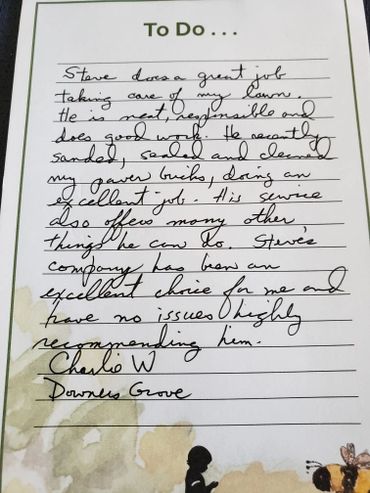 To Do . . .
Steve does a great job
taking care of my lawn.
He is neat, responsible and
does good work. He recently
sanded, sealed and cleaned
my paver bricks, doing an
excellent job. His service
also offers many other
things he can do. Steve's
company has been an
excellent choice for me and
have no issues highly
recommending him.
Charlie W
Downers Grove